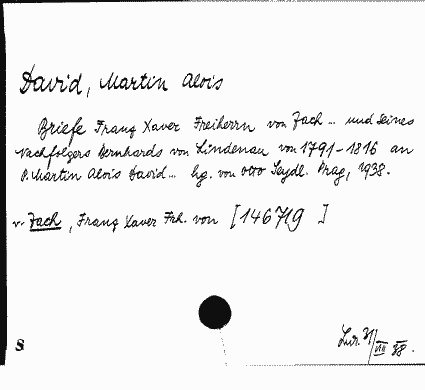 David, Martin Alois
Briefe Franz Xaver Freiherrn von Zach ... und seines
Nachfolgers Bernhards von Lindenau von 1791-1816 an
P. Martin Alois David ... hg. von Otto Seydl. Prag, 1938.
v. Zach, Franz Xaver Frh. von [146719 ]
8
31/VIII 38.